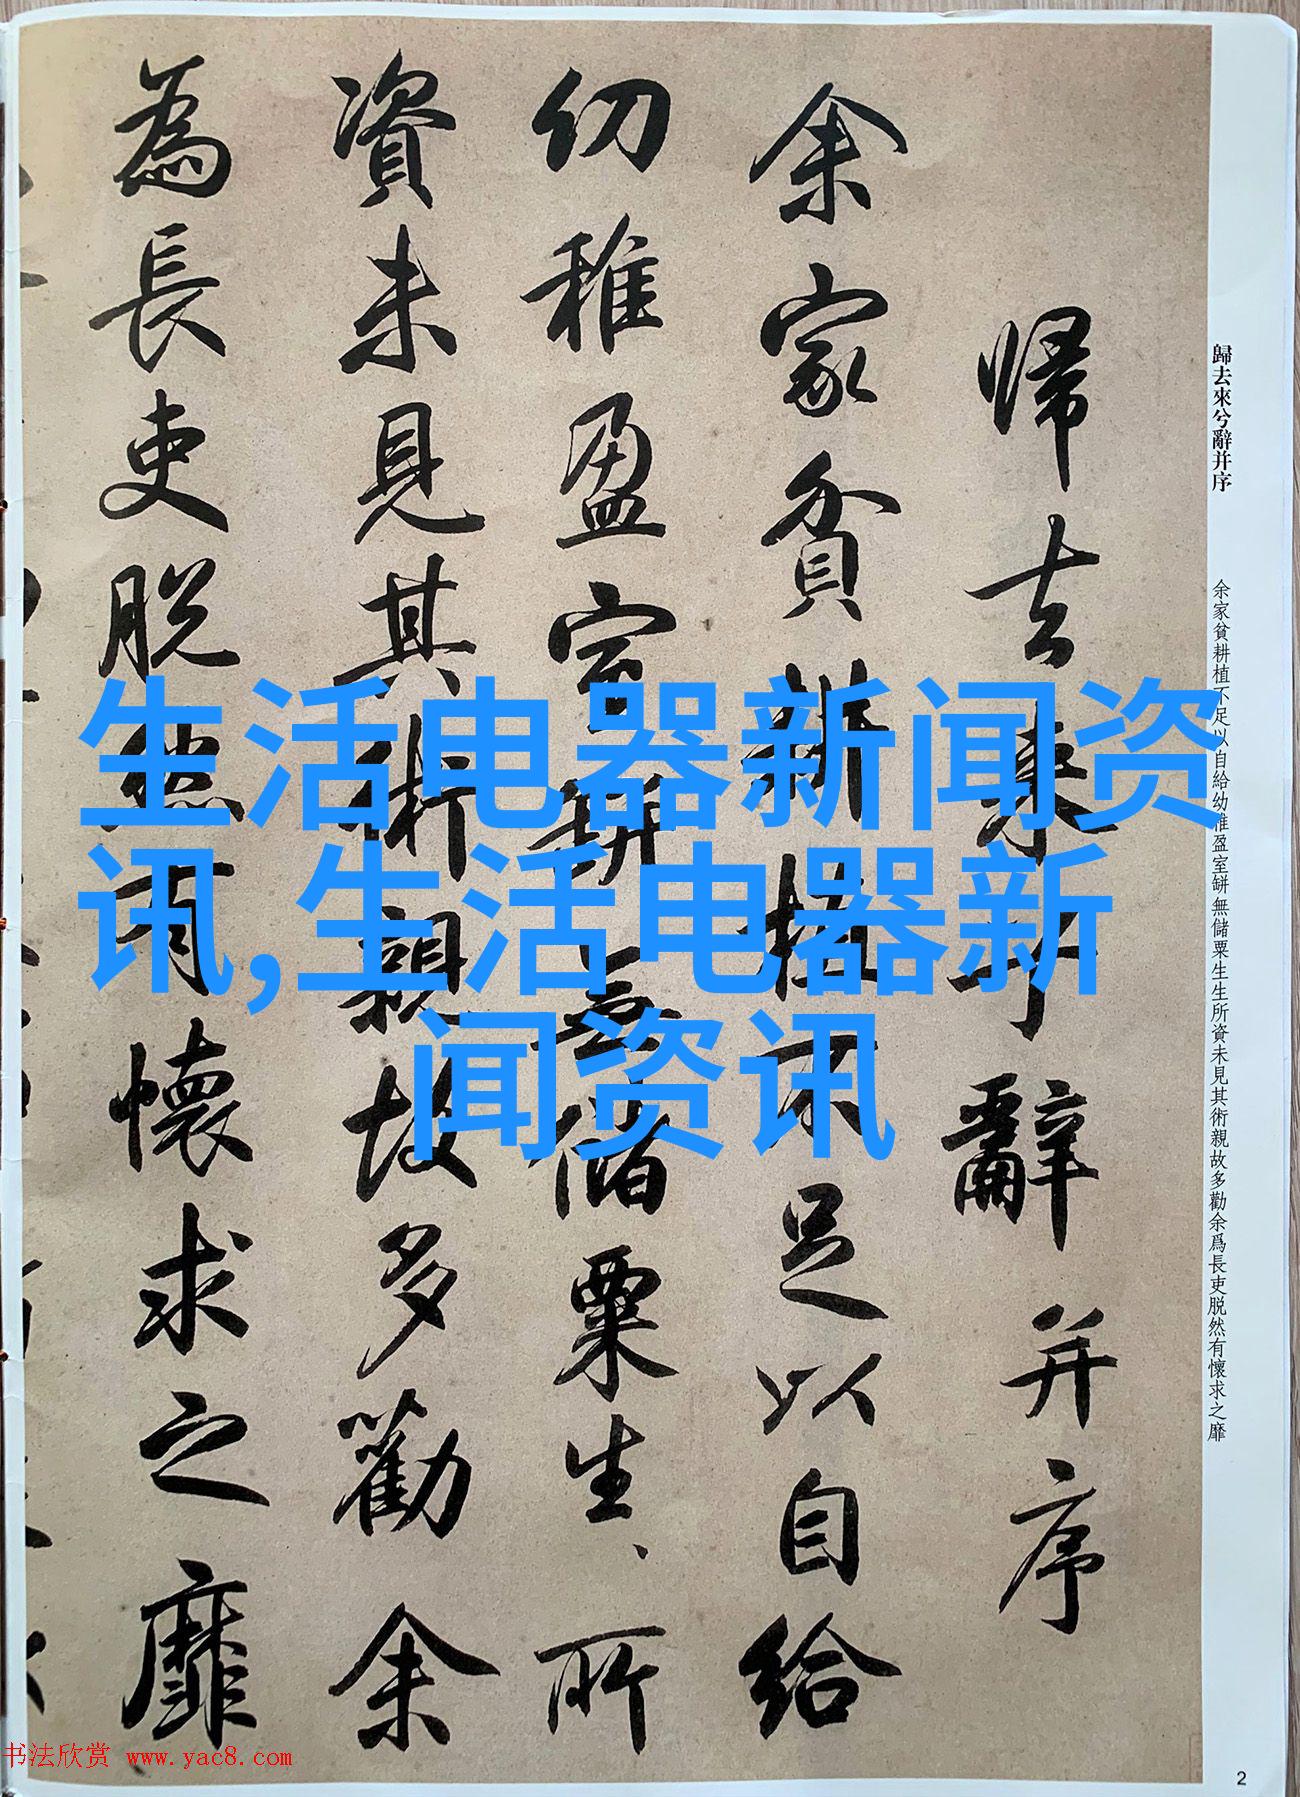 歸去來兮辭并序
余家貧耕植不足以自給幼稚盈室缾無儲粟生生所資未見其術親故多勸余爲長吏脱然有懷求之靡
帰去来兮辭并序
余家貧耕植不足以自給
幼稚盈室缾無儲粟生、所
資未見其術親故多勸余
為長吏脱然有懷求之靡
生活电器新闻资
讯,生活电器新
闻资讯
书法欣赏 www.yac8.com
2